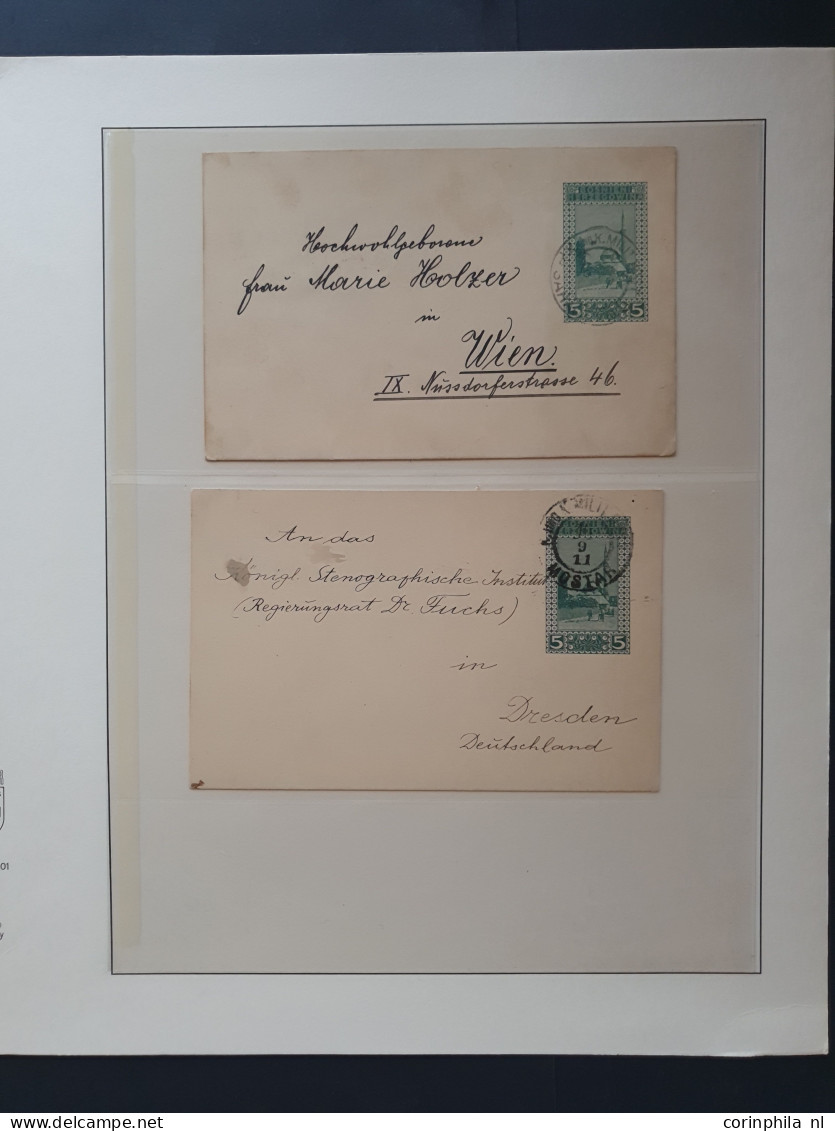 Hochwohlgeboren
Frau Marie Holzer
in
Wien.
IX. Nussdorferstrasse 46.
5 5
An das
Königl. Stenographische Institut
(Regierungsrat Dr. Fuchs)
in
Dresden
Deutschland
9
11
MOSTAR
5 5
01
y
corinphila nl